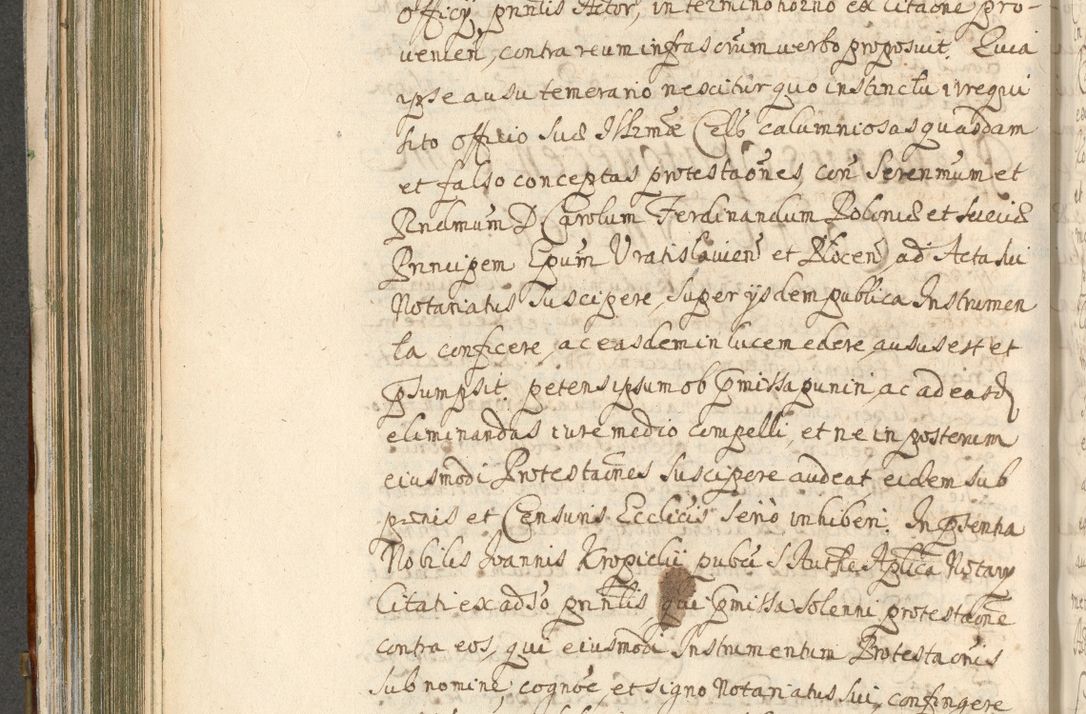 officÿ pnntis Actor, in termino horno ex citaone pro-
venien, contra reum infrascrum verbo proposuit. Quia
ipse ausu temerario nescitur quo instinctu irrequi
sito officio Suæ Illrmæ Cels calumniosas quasdam
et falso conceptas protestaones, con Serenmum et
Rndmum D Carolum Ferdinandum Poloniæ et Sveciæ
Principem Epum Vratislavien et Plocen, ad Acta sui
Notariatus suscipere, super ijsdem publica Instrumen
ta conficere, ac easdem in lucem edere, ausus est et
psumpsit. petens ipsum ob pmissa puniri, ac ad easd
eliminandas iure medio compelli, et ne in posterum
eiusmodi Protestaones suscipere audeat eidem sub
pænis et Censuris Ecclicis serio inhiberi. In psentia
Nobilis Joannis Kropiclii pubci S. Authe Aplica Notarÿ
Citati ex adso pnntis, qui pmissa solenni protestaone
contra eos, qui eiusmodi Instrumentum Protestaonis
sub nomine, cognoe, et signo Notariatus sui, confingere